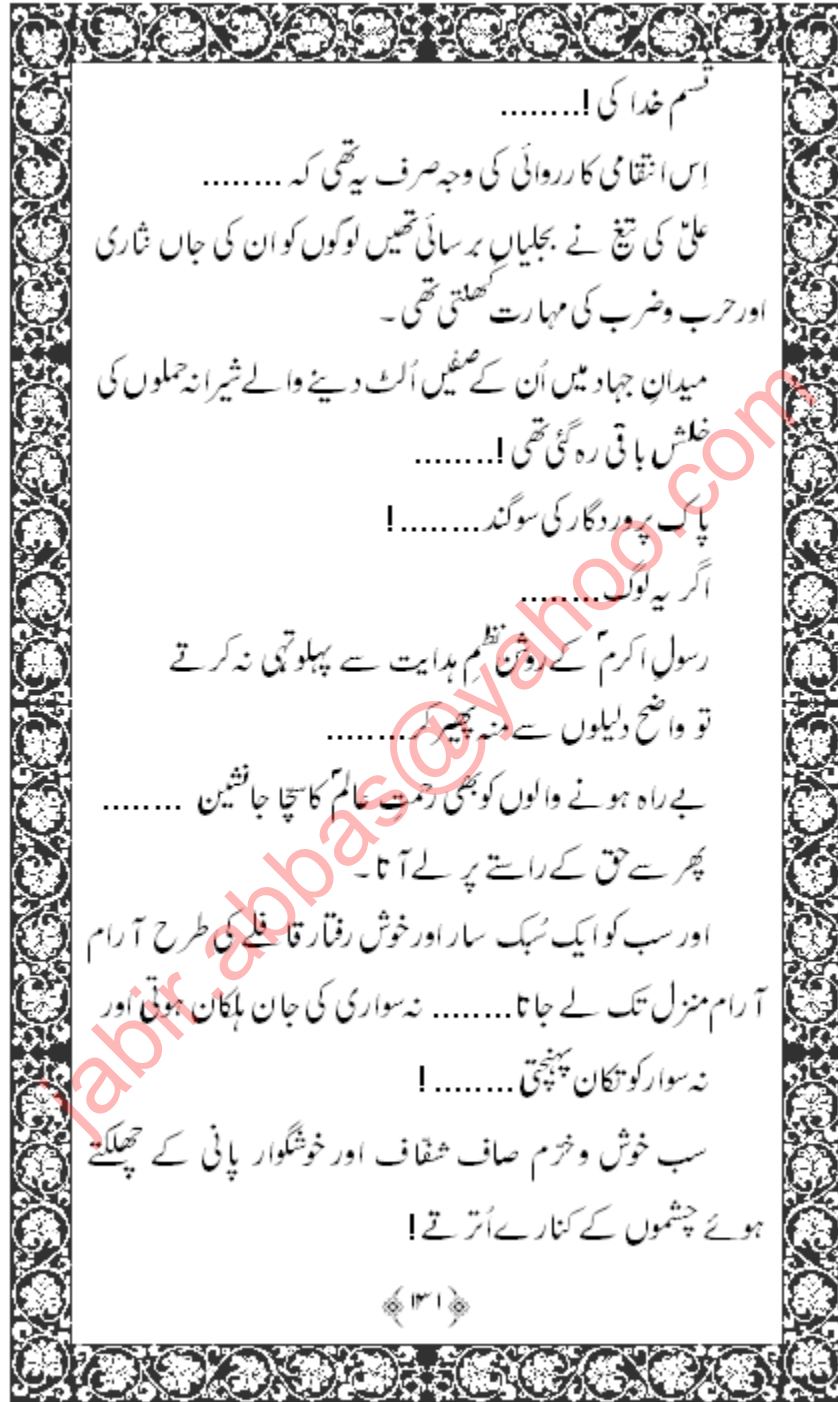 قسم خدا کی !........
اِس انتقامی کارروائی کی وجہ صرف یہ تھی کہ ........
علیؑ کی تیغ نے بجلیاں برسائی تھیں لوگوں کو ان کی جاں نثاری
اور حرب و ضرب کی مہارت کَھلتی تھی ۔
میدانِ جہاد میں اُن کے صفیں اُلٹ دینے والے شیرانہ حملوں کی
خلش باقی رہ گئی تھی !........
پاک پروردگار کی سوگند........ !
اگر یہ لوگ........
رسولِ اکرمؐ کے روشن نظمِ ہدایت سے پہلوتہی نہ کرتے
تو واضح دلیلوں سے منہ پھیر کر........
بے راہ ہونے والوں کو بھی رحمتِ عالمؐ کا سچّا جانشین ........
پھر سے حق کے راستے پر لے آتا۔
اور سب کو ایک سُبک سار اور خوش رفتار قافلے کی طرح آرام
آرام منزل تک لے جاتا........ نہ سواری کی جان ہلکان ہوتی اور
نہ سوار کو تکان پہنچتی ........ !
سب خوش و خرّم صاف شفّاف اور خوشگوار پانی کے چھلکتے
ہوئے چشموں کے کنارے اُترتے !
﴿۱۳۱﴾
jabir.abbas@yahoo.com